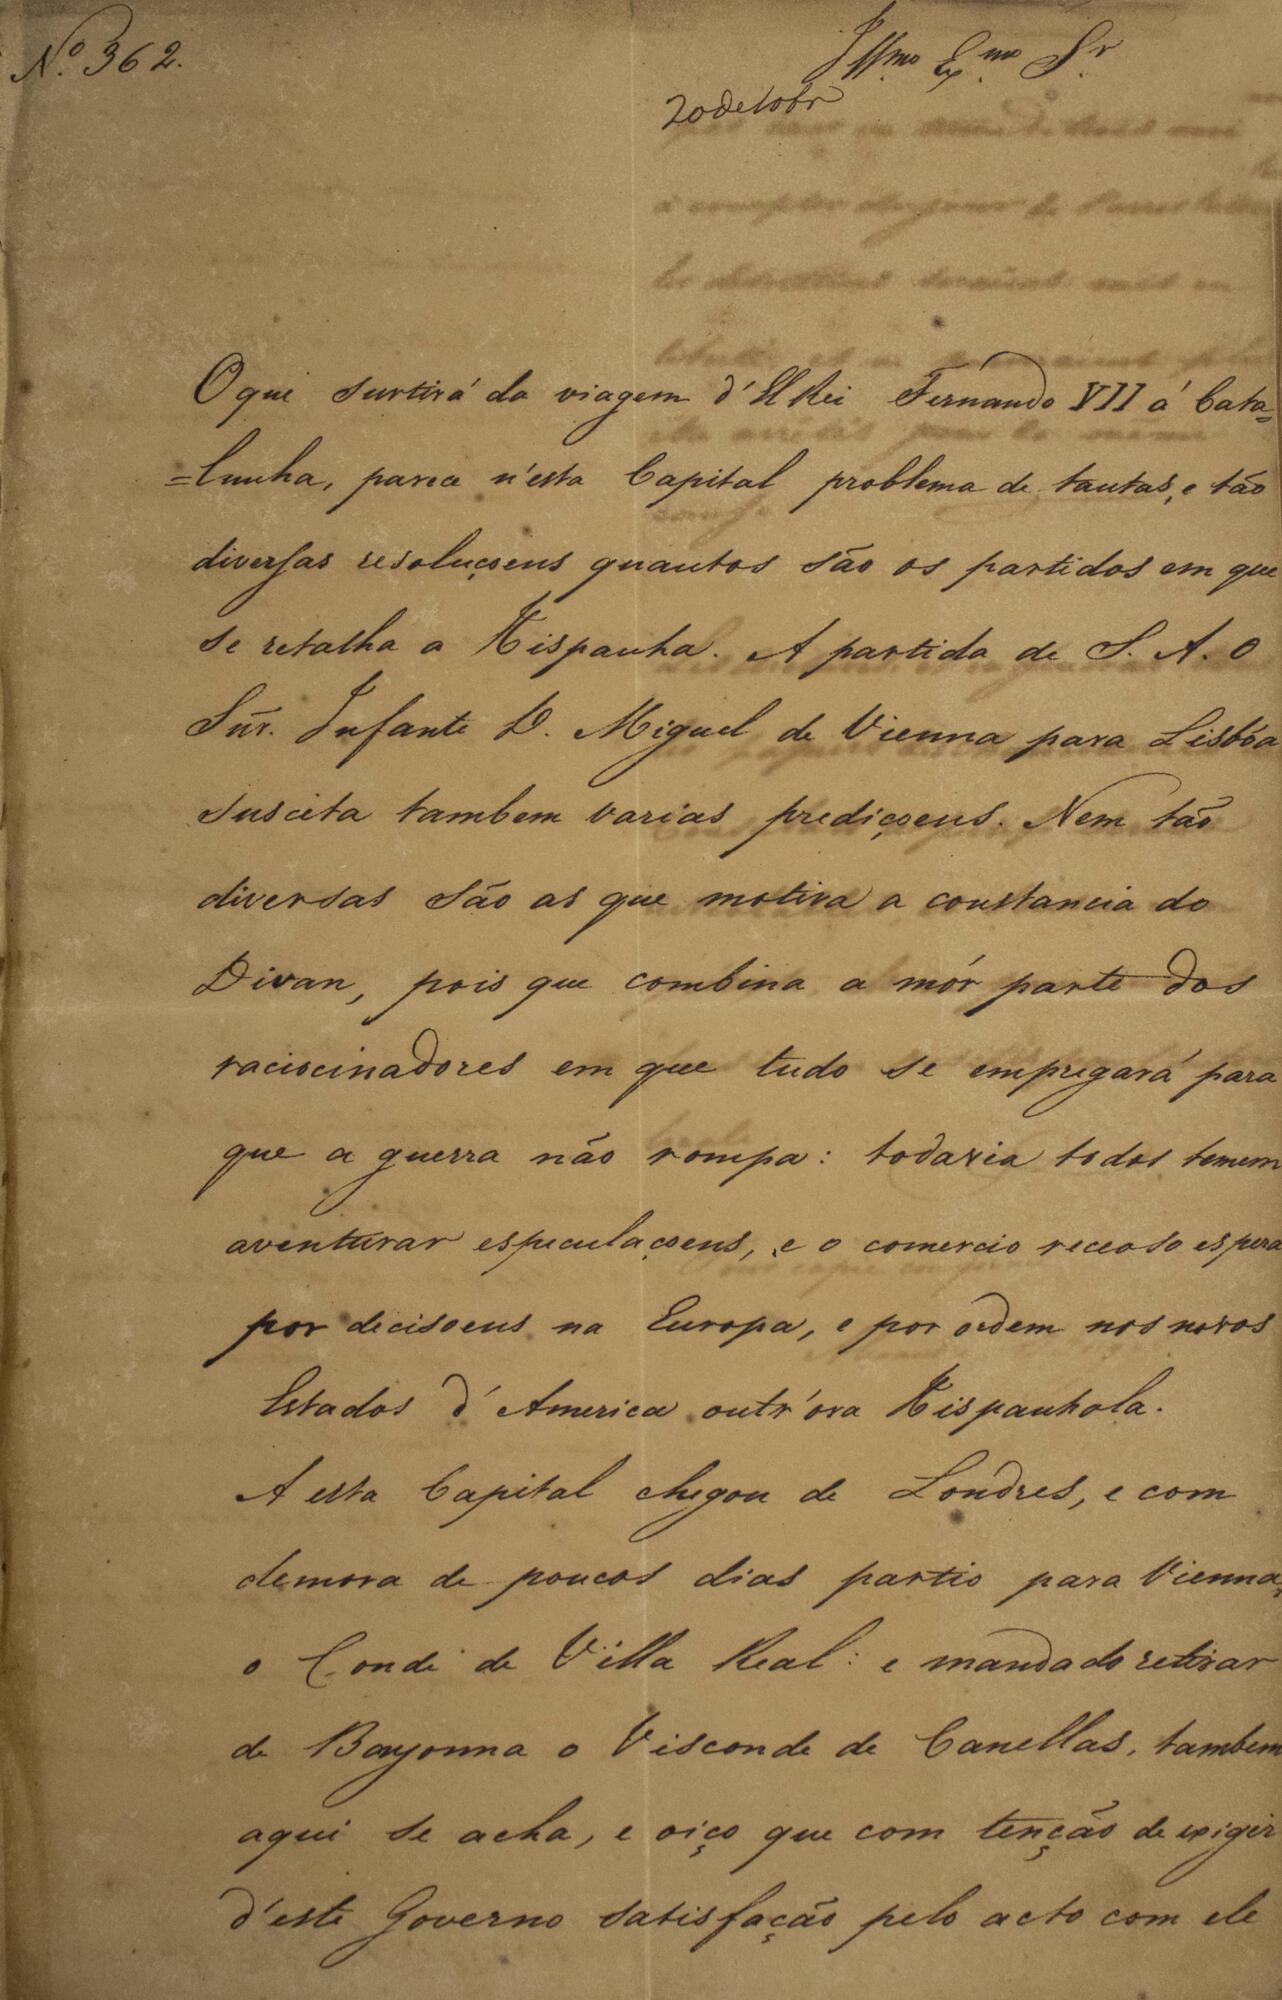 Nº 362.
Illmo Exmo Sr
20 de 10br
O que surtirá da viagem d'ElRei Fernando VII á Cata=
=lunha, parece n'esta Capital problema de tantas, e tão
diversas resoluçoens quantos são os partidos em que
se retalha a Hispanha. A partida de S. A. O
Sñr. Infante D. Miguel de Vienna para Lisbôa
suscita tambem varias prediçoens. Nem tão
diversas são as que motiva a constancia do
Divan, pois que combina a mór parte dos
raciocinadores em que tudo se empregará para
que a guerra não rompa: todavia todos temem
aventurar especulaçoens, e o comercio receoso espera
por decisoens na Europa, e por ordem nos novos
Estados d'America outr'ora Hispanhola.
A esta Capital chegou de Londres, e com
demora de poucos dias partio para Vienna,
o Conde de Villa Real: e mandado retirar
de Bayonna o Visconde de Canellas, tambem
aqui se acha, e oiço que com tenção de exigir
d'este Governo satisfação pelo acto com ele